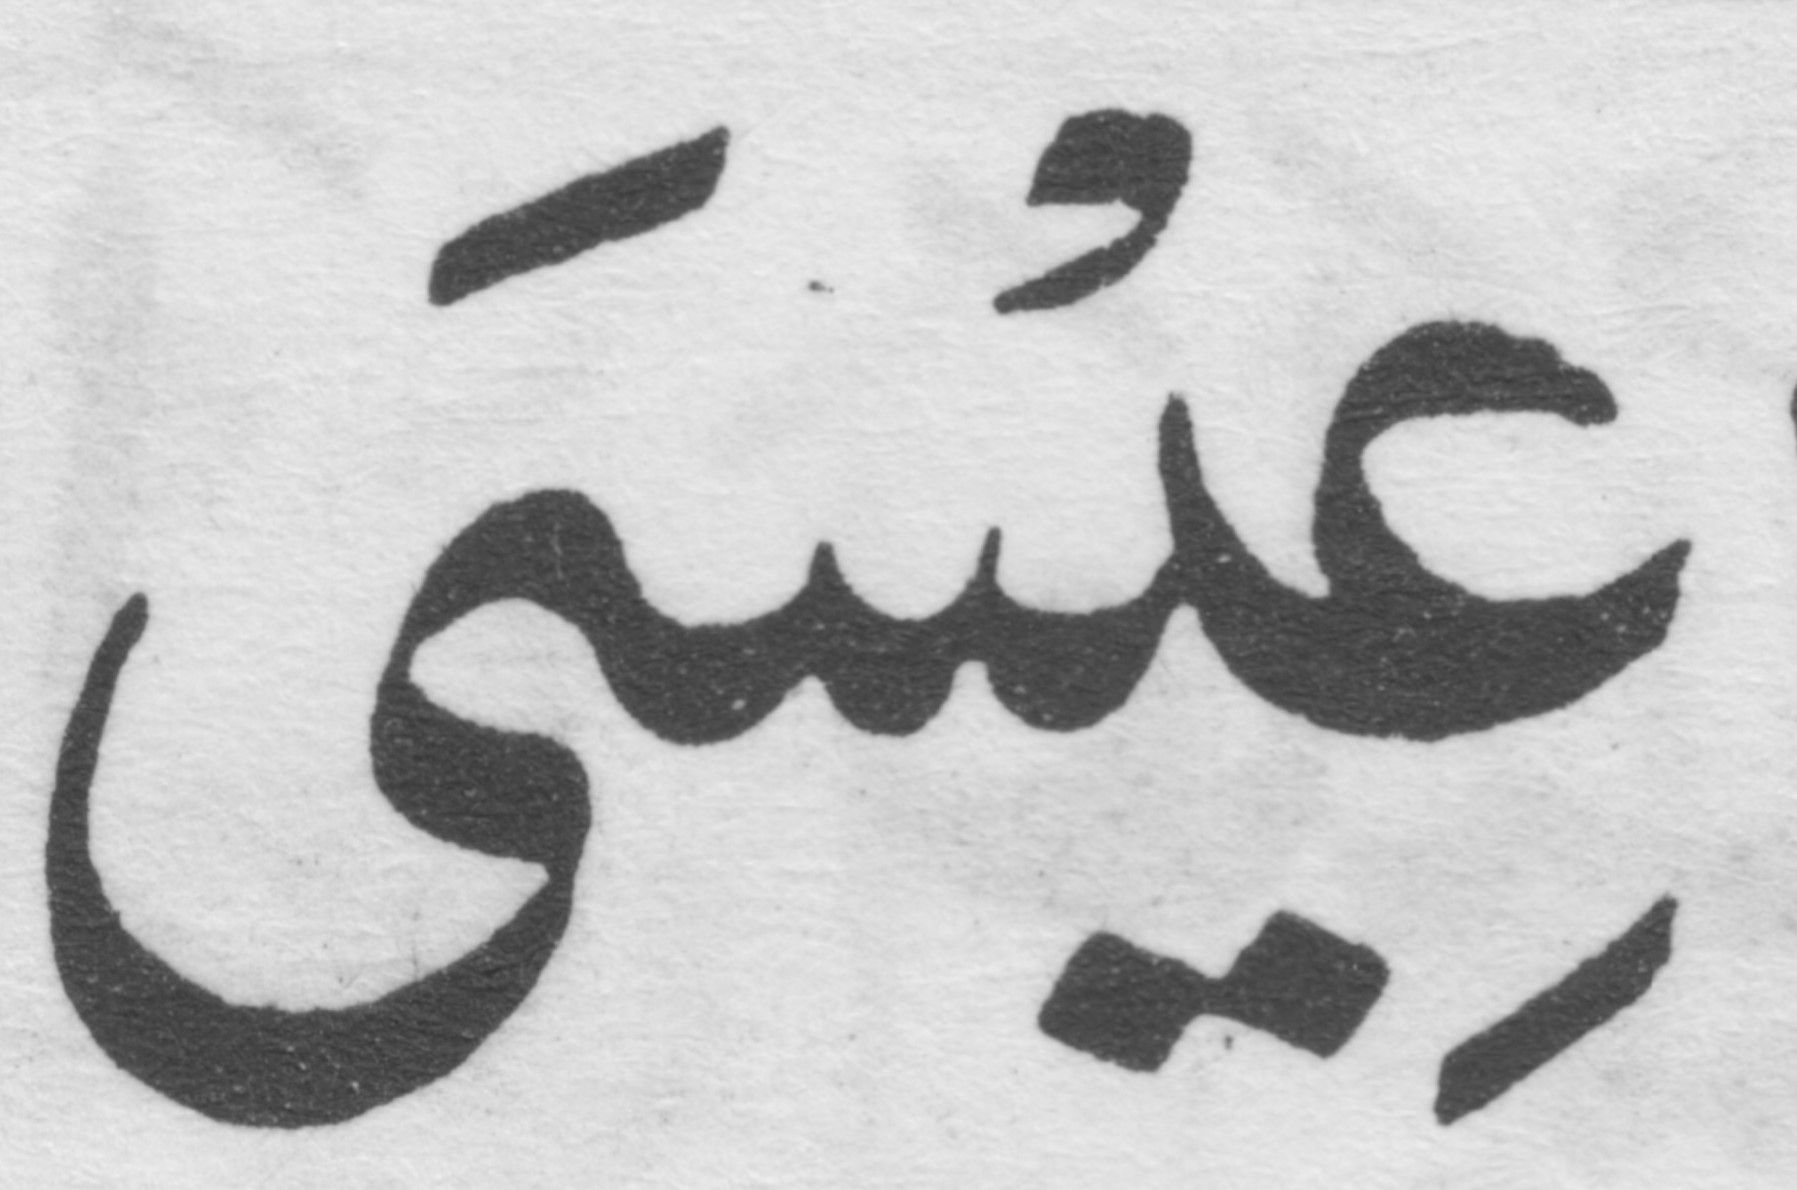 عِيْسَى